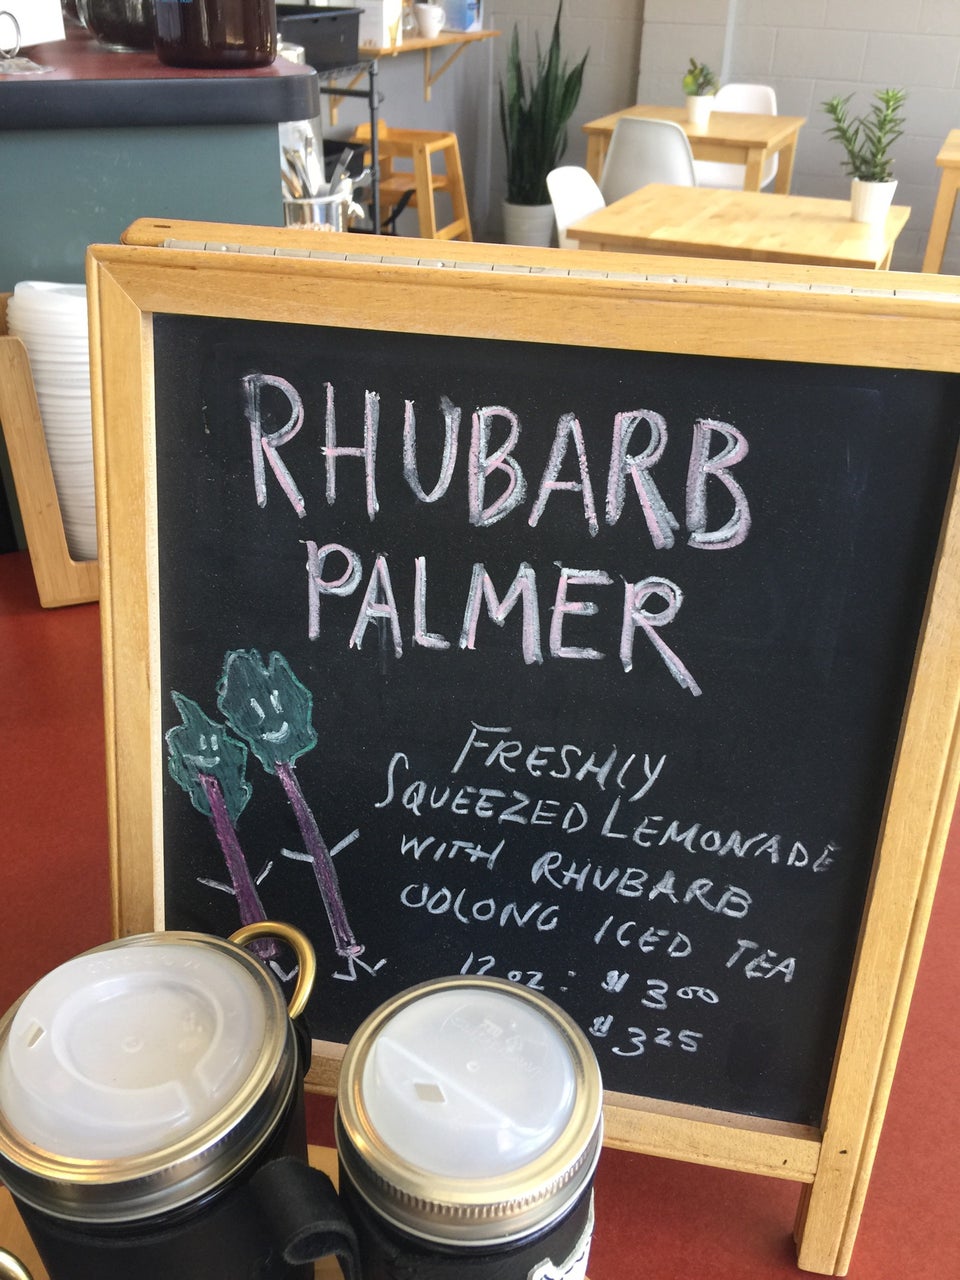 RHUBARB
PALMER
FRESHLY
SQUEEZED LEMONADE
WITH RHUBARB
OOLONG ICED TEA
12 oz : $3.00
$3.25